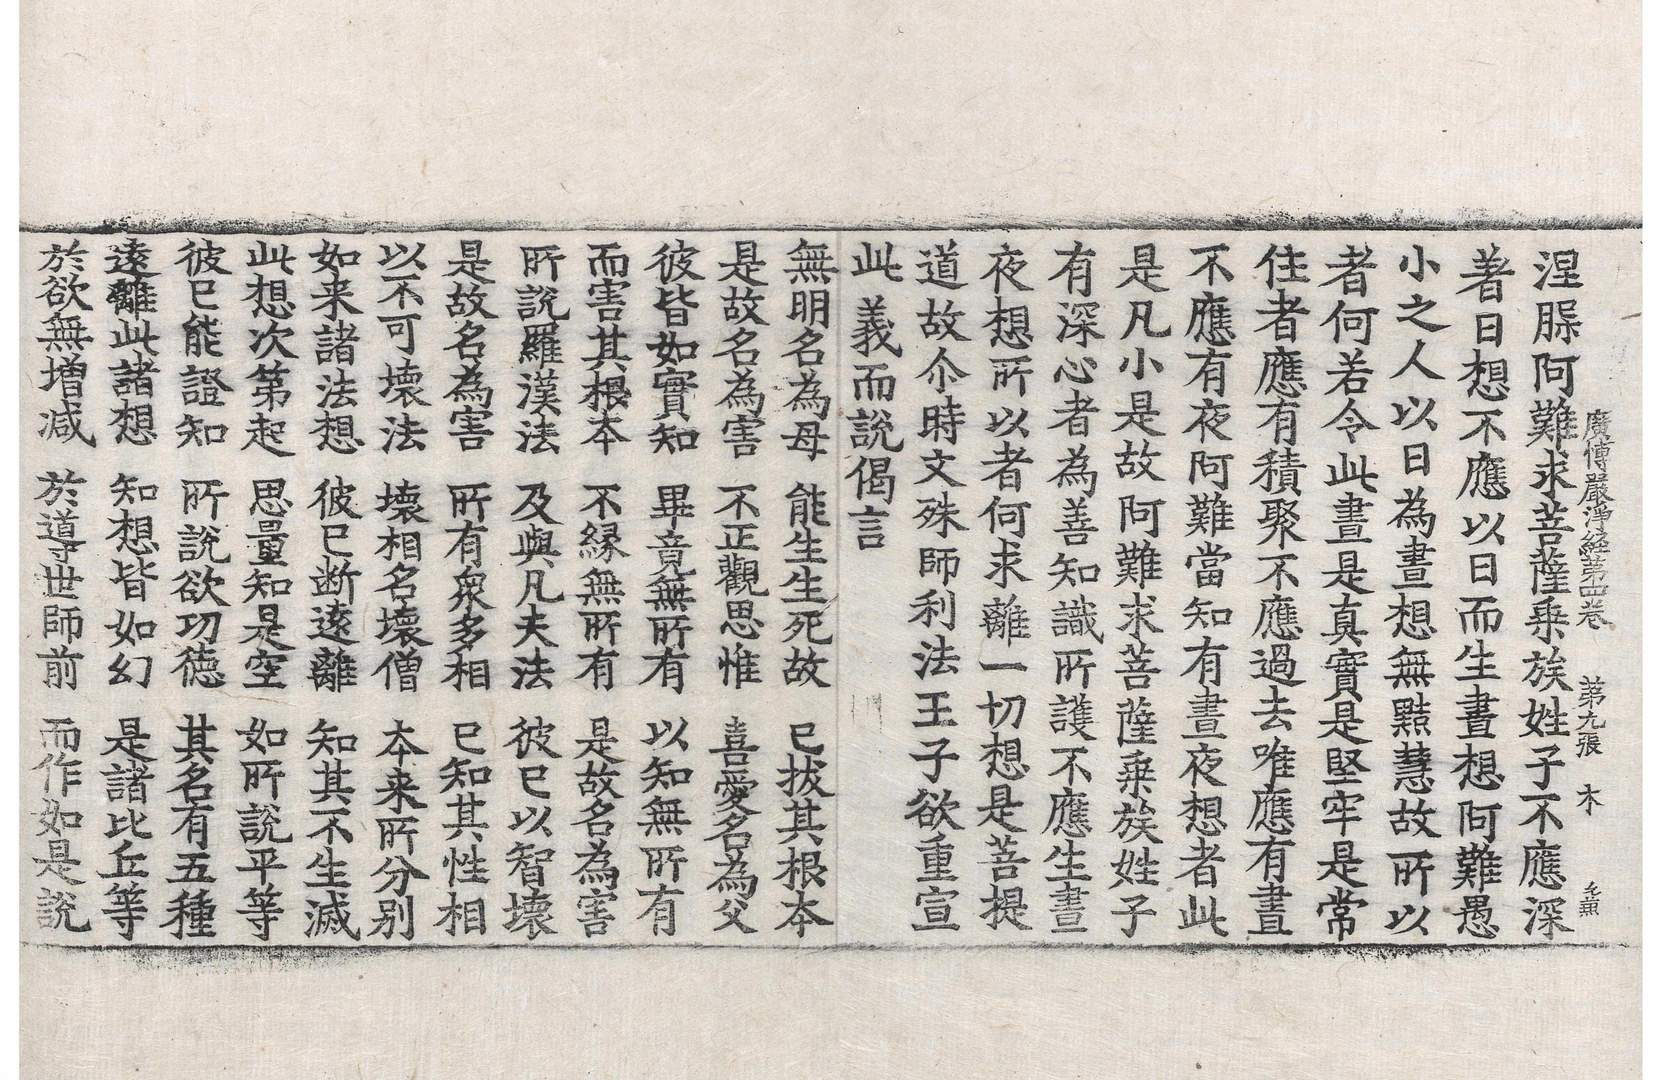 涅脲阿難求菩薩乗族姓子不應深
著日想不應以日而生晝想阿難愚
小之人以日為晝想無黠慧故所以
者何若令此晝是真實是堅牢是常
住者應有積聚不應過去唯應有晝
不應有夜阿難當知有晝夜想者此
是凡小是故阿難求菩薩乗族姓子
有深心者為善知識所護不應生晝
夜想所以者何求離一切想是菩提
道故尒時文殊師利法王子欲重宣
此義而說偈言
無明名為母 能生生死故 已拔其根本
是故名為害 不正觀思惟 喜愛名為父
彼皆如實知 畢竟無所有 以知無所有
而害其根本 不縁無所有 是故名為害
所說羅漢法 及與凡夫法 彼已以智壞
是故名為害 所有衆多相 已知其性相
以不可壞法 壞相名壞僧 本来所分别
如来諸法想 彼已断遠離 知其不生滅
此想次第起 思量知是空 如所說平等
彼已能證知 所說欲功徳 其名有五種
遠離此諸想 知想皆如幻 是諸比丘等
於欲無增減 於導世師前 而作如是說
廣博嚴淨經第四卷 第九張 木